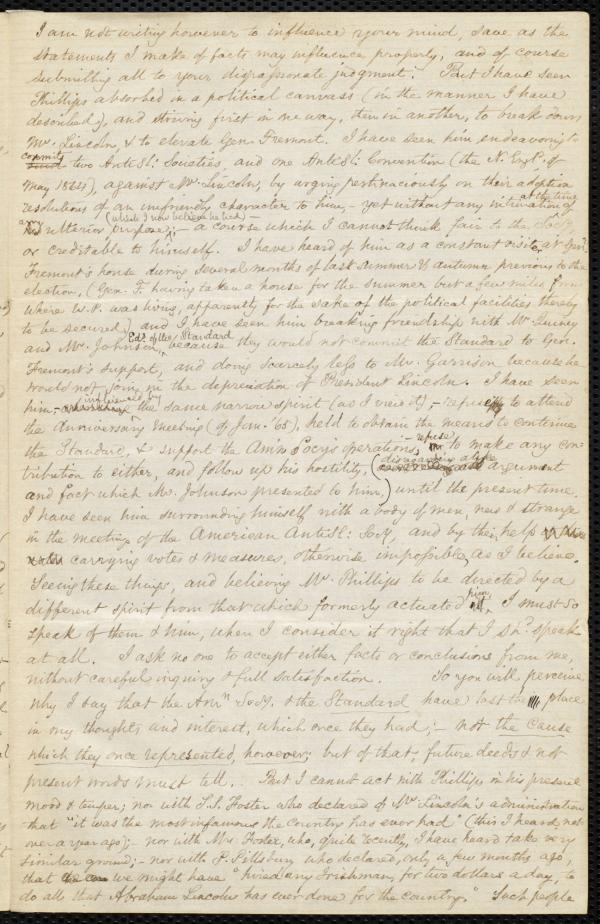 I am not writing however to influence your mind, save as the
statements I make of facts may influence properly, and of course
submitting all to your dispassionate judgment. But I have seen
Phillips absorbed in a political canvass (in the manner I have
described), and striving first in one way, then in another, to break down
Mr. Lincoln, & to elevate Gen. Fremont. I have seen him endeavoring to
commit two Anti Sl: Societies, and one Anti Sl: Convention (the N. Eng. of
May 1864), against Mr. Lincoln, by urging pertinaciously on their adoption
resolutions of an unfriendly character to him, – yet without any intimation at the time of
any ulterior purpose (which I now believe he had) – a course which I cannot think fair to the Socy.
or creditable to himself. I have heard of him as a constant visitor at Genl.
Fremont's house during several months of last summer & autumn previous to the
election, (Gen. F. having taken a house for the summer but a few miles from
where W. P. was living, apparently for the sake of the political facilities thereby
to be secured) and I have seen him breaking friendship with Mr. Quincy
and Mr. Johnson, Eds. of the Standard because they would not commit the Standard to Gen.
Fremont's support, and doing scarcely less to Mr. Garrison because he
would not join in the depreciation of President Lincoln. I have seen
him, – influenced by the same narrow spirit (as I view it), – refuse to attend
the Anniversary meeting (of Jan. '65), held to obtain the means to continue
the Standard, & support the Am'n Socy's operations, – refuse to make any con-
tribution to either, and follow up his hostility, (disregarding alike argument
and fact which Mr. Johnson presented to him,) until the present time.
I have seen him surrounding himself with a body of men, new & strange
in the meetings of the American Anti Sl: Socy, and by their help
carrying votes & measures, otherwise impossible, as I believe.
Seeing these things, and believing Mr. Phillips to be directed by a
different spirit from that which formerly actuated him, I must so
speak of them & him, when I consider it right that I shd. speak
at all. I ask no one to accept either facts or conclusions from me,
without careful inquiry & full satisfaction. So you will perceive
why I say that the Amn. Socy. & the Standard have lost the place
in my thoughts and interest, which once they had; – not the cause
which they once represented, however; but of that, future deeds & not
present words must tell. But I cannot act with Phillips in his present
mood & temper; nor with S. S. Foster who declared of Mr. Lincoln's administration
that "it was the most infamous the Country has ever had" (this I heard, not
over a year ago); – nor with Mrs. Foster, who, quite recently, I have heard take very
similar ground; – nor with P. Pillsbury who declared, only a few months ago,
that we might have "hired any Irishman, for two dollars a day, to
do all that Abraham Lincoln has ever done for the country." Such people